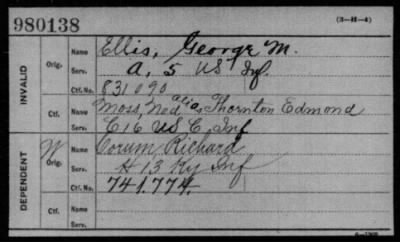 980138
(3-H-4)
INVALID
Orig. Name Ellis, George M.
Serv. A, 5 US Inf.
Ctf. No. 831090
Ctf. Name Moss, Ned alias Thornton Edmond
Serv. C 16 US C Inf
DEPENDENT
W Orig. Name Corum Richard
Serv. H 13 Ky Inf
Ctf. No. 741.774.
Ctf. Name
Serv.